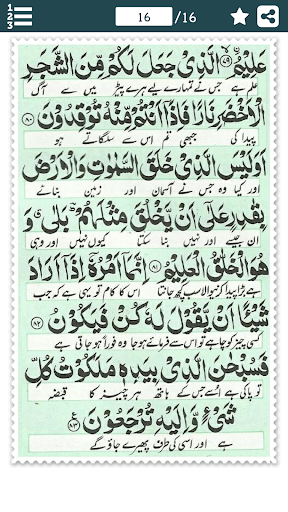 1
2
3
16 /16
عَلِيْمٌ ﴿۷۹﴾ الَّذِيْ جَعَلَ لَكُمْ مِّنَ الشَّجَرِ
علم ہے جس نے تمہارے لیے ہرے پیڑ میں سے آگ
الْاَخْضَرِ نَارًا فَاِذَآ اَنْتُمْ مِّنْهُ تُوْقِدُوْنَ ﴿۸۰﴾
پیدا کی جبھی تم اس سے سلگاتے ہو
اَوَلَيْسَ الَّذِيْ خَلَقَ السَّمٰوٰتِ وَالْاَرْضَ
اور کیا وہ جس نے آسمان اور زمین بنائے
بِقٰدِرٍ عَلٰٓى اَنْ يَّخْلُقَ مِثْلَهُمْ ؕ بَلٰى ۗ وَ
ان جیسے اور نہیں بنا سکتا کیوں نہیں اور وہی
هُوَ الْخَلّٰقُ الْعَلِيْمُ ﴿۸۱﴾ اِنَّمَآ اَمْرُهٗٓ اِذَآ اَرَادَ
ہے بڑا پیدا کرنیوالا سب کچھ جانتا اس کا کام تو یہی ہے کہ جب
شَيْـًٔا اَنْ يَّقُوْلَ لَهٗ كُنْ فَيَكُوْنُ ﴿۸۲﴾
کسی چیز کو چاہے تو اس سے فرمائے ہو جا وہ فوراً ہو جاتی ہے
فَسُبْحٰنَ الَّذِيْ بِيَدِهٖ مَلَكُوْتُ كُلِّ
تو پاکی ہے اُسے جس کے ہاتھ ہر چیز کا قبضہ
شَيْءٍ وَّاِلَيْهِ تُرْجَعُوْنَ ﴿۸۳﴾ ع
ہے اور اسی کی طرف پھیرے جاؤ گے